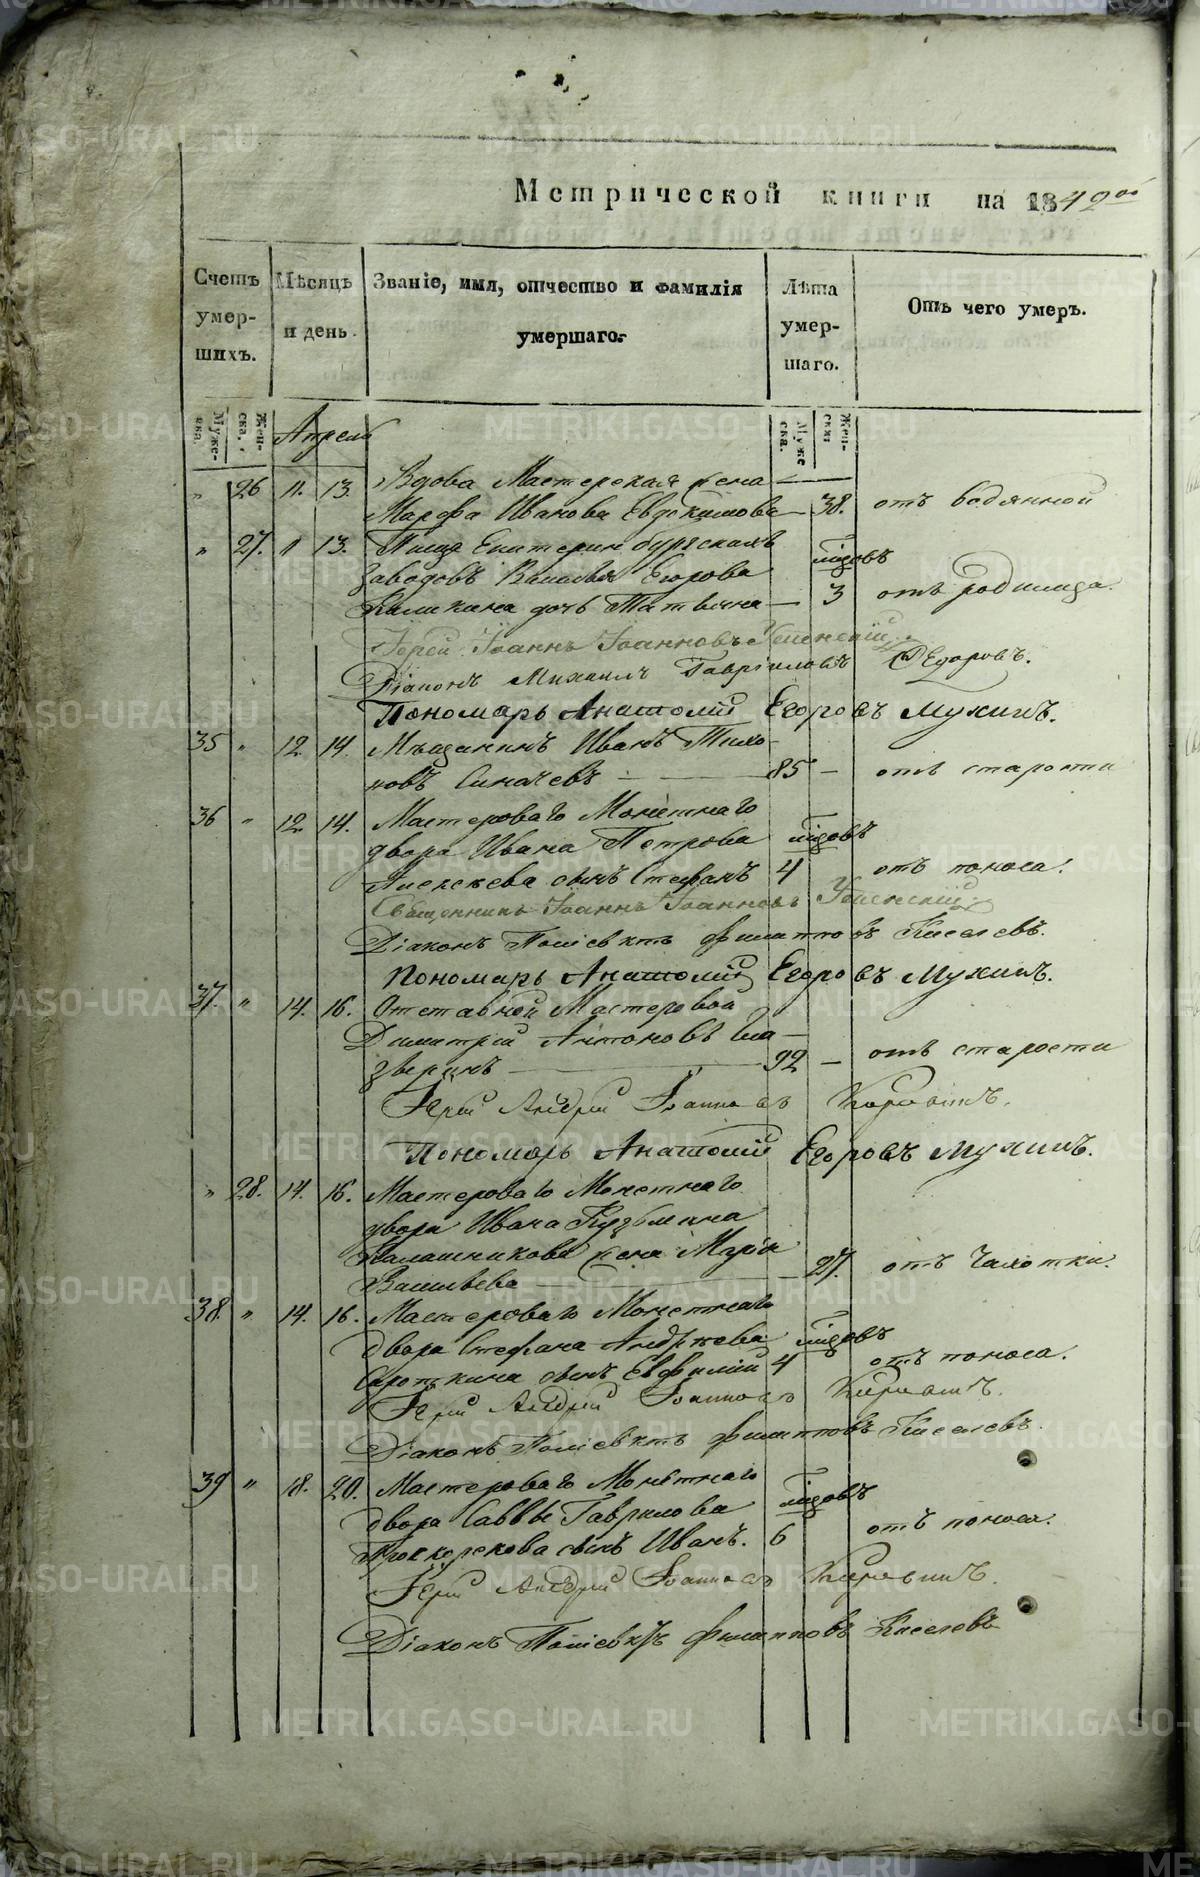 Метрической книги на 1842ой
Счетъ умер-шихъ.
Мѣсяцъ и день.
Званіе, имя, отчество и фамилія умершаго.
Лѣта умер-шаго.
Отъ чего умеръ.
Муже-ска.
Жен-ска.
Апрель
Муже ска.
Жен-ски:
" 26 11. 13. Вдова Мастерская жена
Марфа Иванова Евдокимова — 38. отъ водянной
" 27. 11 13. Писца Екатеринбургскихъ
заводовъ Василья Егорова мцовъ
Каликина дочь Татьяна — 3 отъ родимца.
Іерей Іоаннъ Іоанновъ Успенскій
Діаконъ Михаилъ Гавріиловъ Ѳедоровъ.
Пономарь Анатолій Егоровъ Мухинъ.
35 " 12 14. Мѣщанинъ Иванъ Тихо-
новъ — 85 — отъ старости
36 " 12. 14. Мастероваго Монѣтнаго
двора Ивана Петрова мцовъ
Алексѣева сынъ Стефанъ 4 отъ поноса.
Священникъ Іоаннъ Іоанновъ Успенскій
Діаконъ Поліевктъ Филипповъ Киселевъ.
Пономарь Анатолій Егоровъ Мухинъ.
37. " 14. 16. Отставной Мастеровой
Димитрій Антоновъ
зверинъ — 92 — отъ старости
Іерей Андрей Іоанновъ
Пономарь Анатолій Егоровъ Мухинъ.
" 28. 14. 16. Мастероваго Монетнаго
двора Ивана Кузьмина
Калашникова жена Марія
Васильева — 27. отъ Чахотки.
38. " 14. 16. Мастероваго Монетнаго
двора Стефана Андрѣева мцовъ
Сироткина сынъ Евфимій 4 отъ поноса.
Іерей Андрей Іоанновъ
Діаконъ Поліевктъ Филипповъ Киселевъ.
39 " 18. 20. Мастероваго Монѣтнаго
двора Саввы Гаврилова мцовъ
сынъ Иванъ. 6 отъ поноса.
Іерей Андрей Іоанновъ
Діаконъ Поліевктъ Филипповъ Киселевъ
METRIKI.GASO-URAL.RU